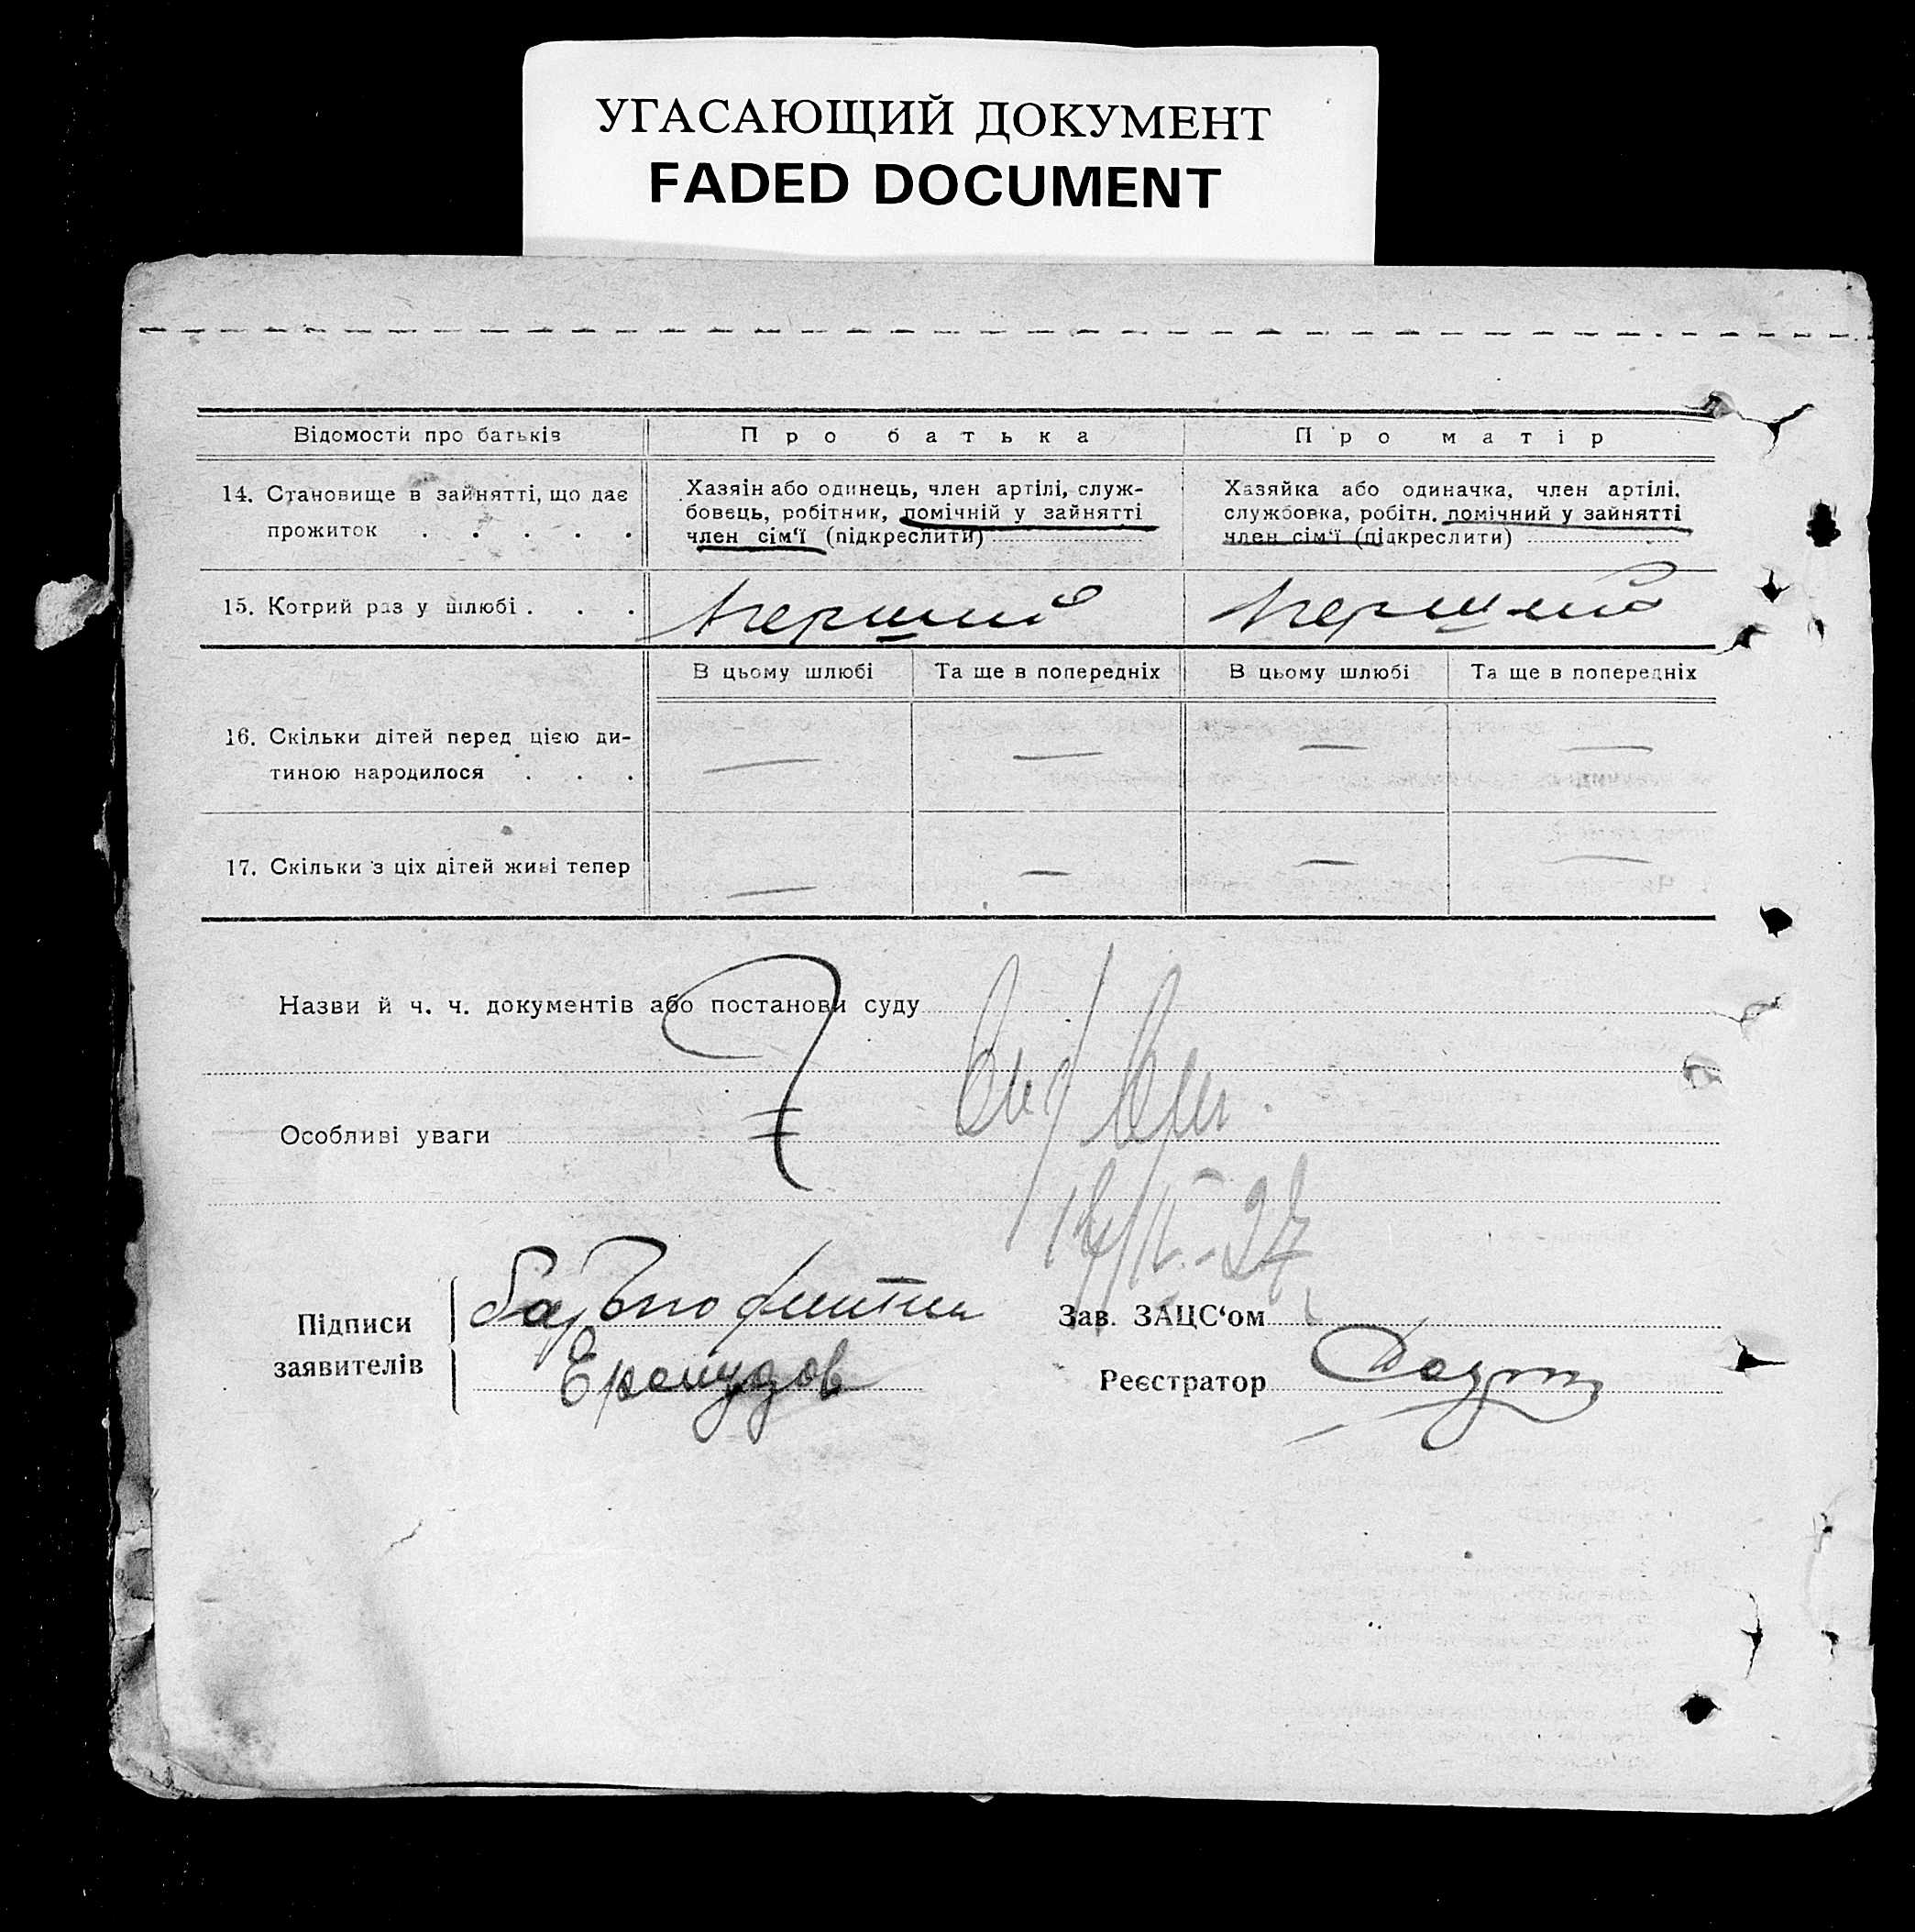 УГАСАЮЩИЙ ДОКУМЕНТ
FADED DOCUMENT
Відомости про батьків
Про батька
Про матір
14. Становище в зайнятті, що дає
прожиток . . . . .
Хазяін або одинець, член артілі, служ-
бовець, робітник, помічній у зайнятті
член сім'ї (підкреслити)
Хазяйка або одиначка, член артілі,
службовка, робітн. помічний у зайнятті
член сім'ї (підкреслити)
15. Котрий раз у шлюбі . . .
перший
перший
В цьому шлюбі
Та ще в попередніх
В цьому шлюбі
Та ще в попередніх
16. Скільки дітей перед цією ди-
тиною народилося . . .
— — — —
17. Скільки з ціх дітей живі тепер
— — — —
Назви й ч. ч. документів або постанови суду
Особливі уваги
Підписи
заявителів
Зав. ЗАЦС'ом
Реєстратор